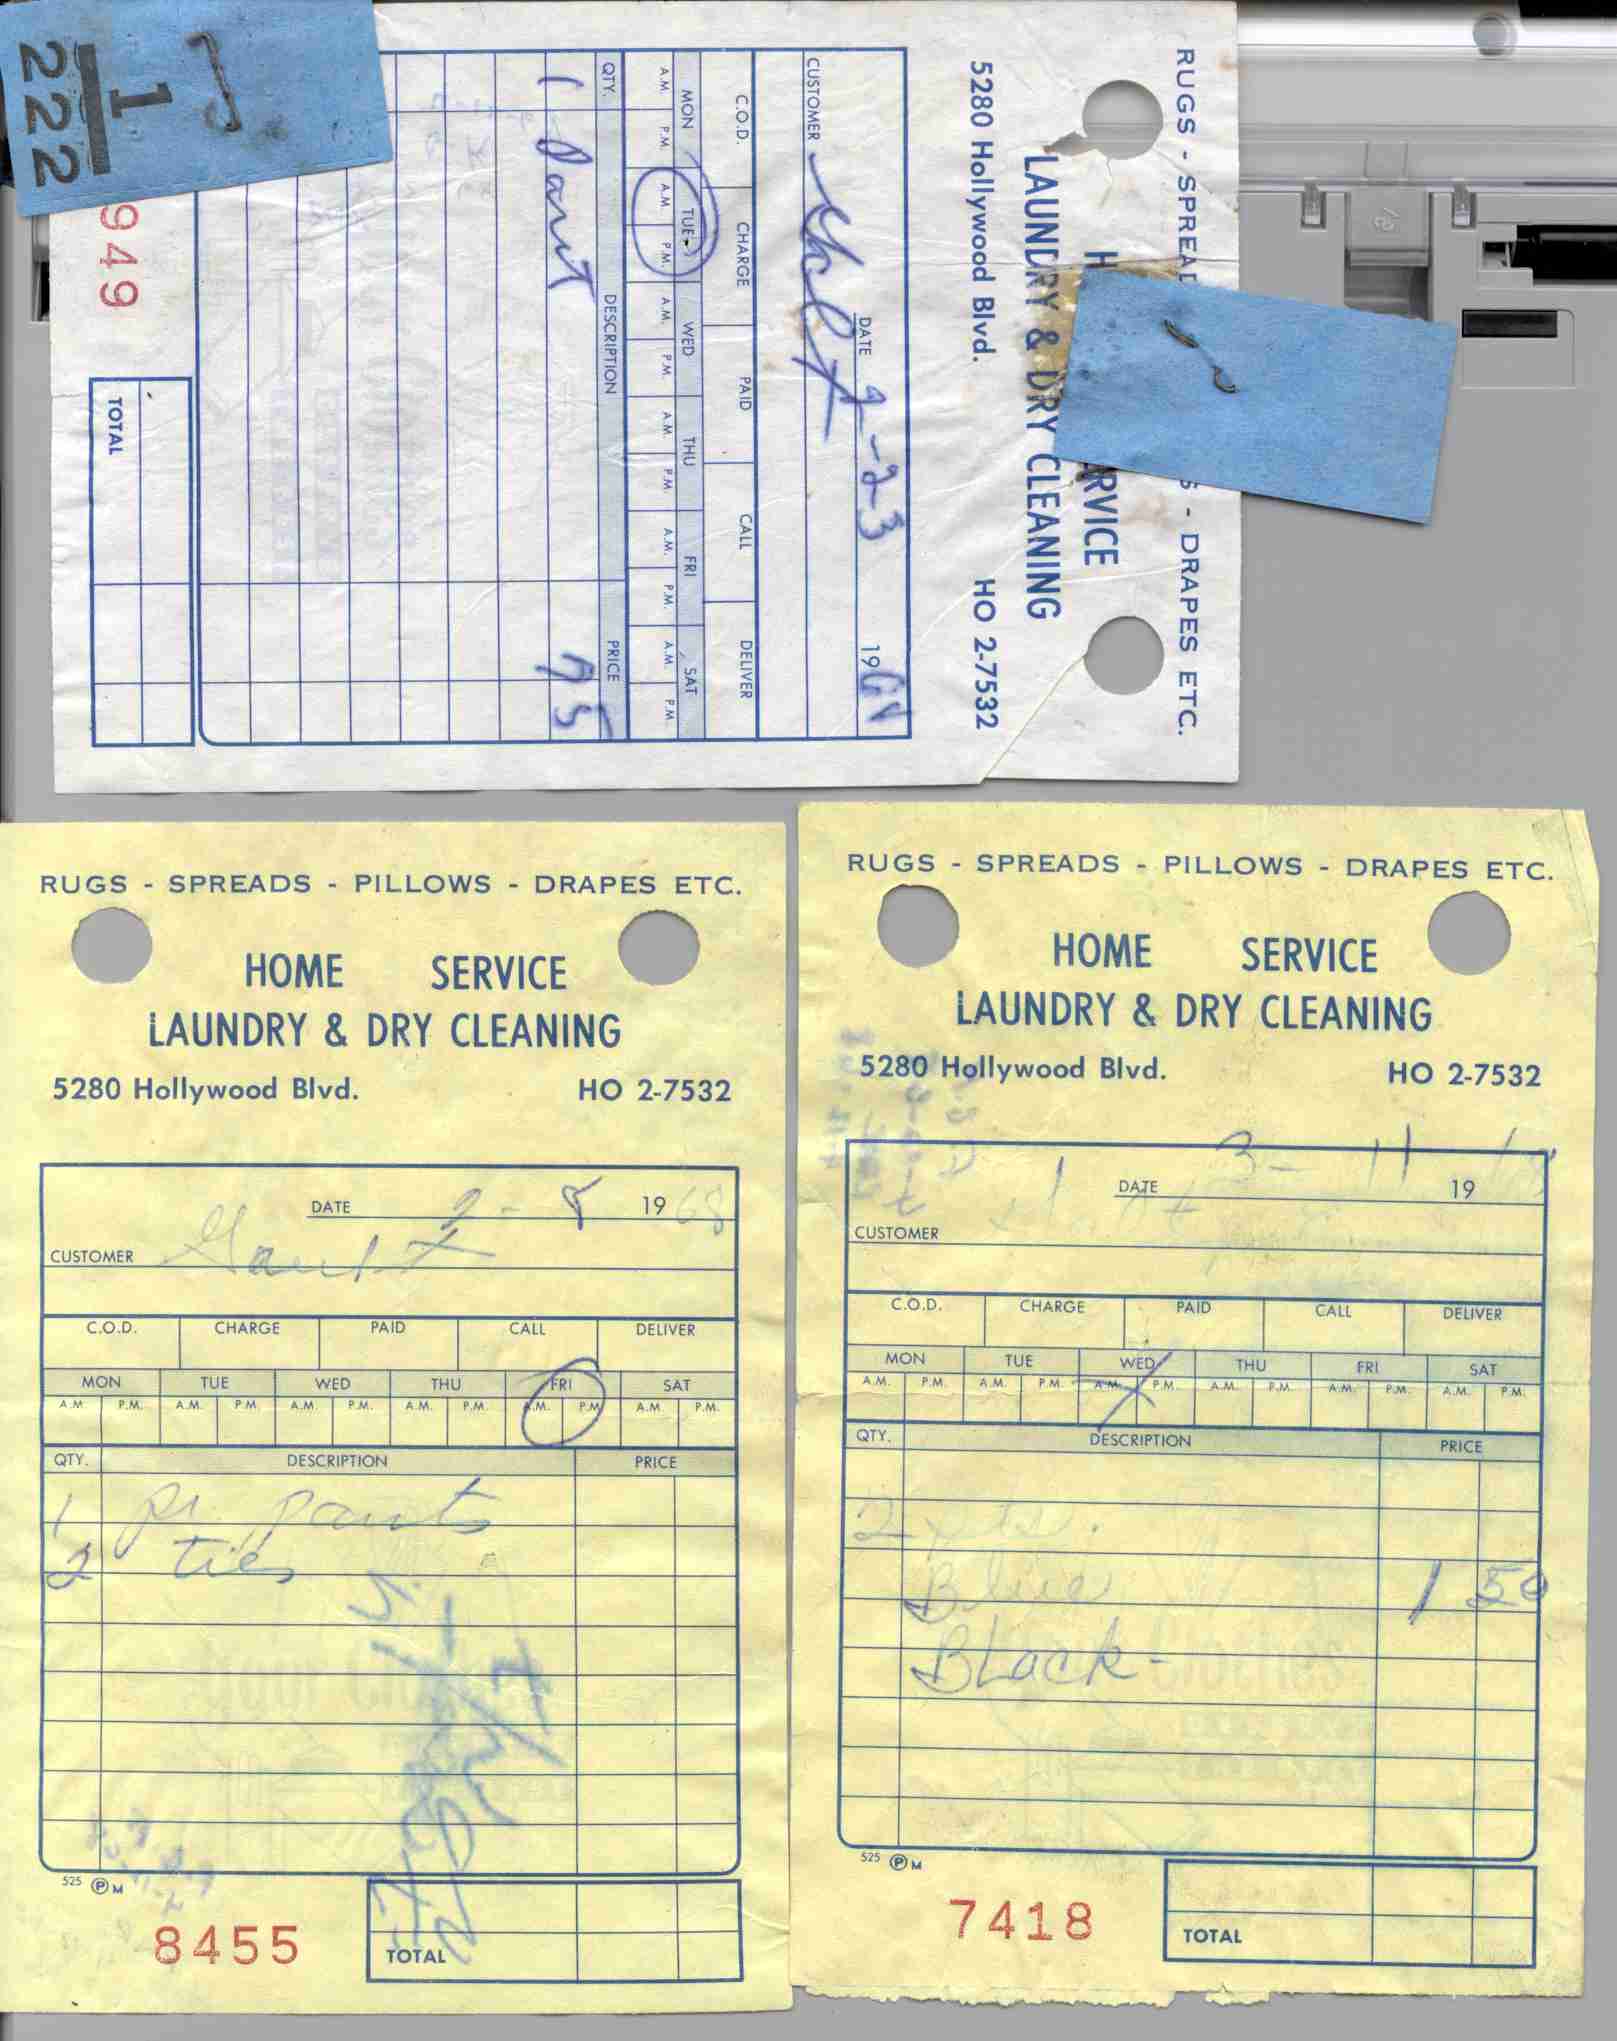 RUGS - SPREAD
S - DRAPES ETC.
H
RVICE
LAUNDRY & DRY CLEANING
5280 Hollywood Blvd. HO 2-7532
DATE 2-23 19
CUSTOMER
C.O.D. CHARGE PAID CALL DELIVER
MON TUE WED THU FRI SAT
A.M. P.M. A.M. P.M. A.M. P.M. A.M. P.M. A.M. P.M. A.M. P.M.
QTY. DESCRIPTION PRICE
1 Pant 75
TOTAL
949
1
222
RUGS - SPREADS - PILLOWS - DRAPES ETC.
HOME SERVICE
LAUNDRY & DRY CLEANING
5280 Hollywood Blvd. HO 2-7532
DATE 2-8 1968
CUSTOMER
C.O.D. CHARGE PAID CALL DELIVER
MON TUE WED THU FRI SAT
A.M. P.M. A.M. P.M. A.M. P.M. A.M. P.M. A.M. P.M. A.M. P.M.
QTY. DESCRIPTION PRICE
1 pr. pants
2 ties
525 P M
8455
TOTAL
RUGS - SPREADS - PILLOWS - DRAPES ETC.
HOME SERVICE
LAUNDRY & DRY CLEANING
5280 Hollywood Blvd. HO 2-7532
DATE 3-11 19
CUSTOMER
C.O.D. CHARGE PAID CALL DELIVER
MON TUE WED THU FRI SAT
A.M. P.M. A.M. P.M. A.M. P.M. A.M. P.M. A.M. P.M. A.M. P.M.
QTY. DESCRIPTION PRICE
2 pts.
Blue 1 50
Black-
525 P M
7418
TOTAL